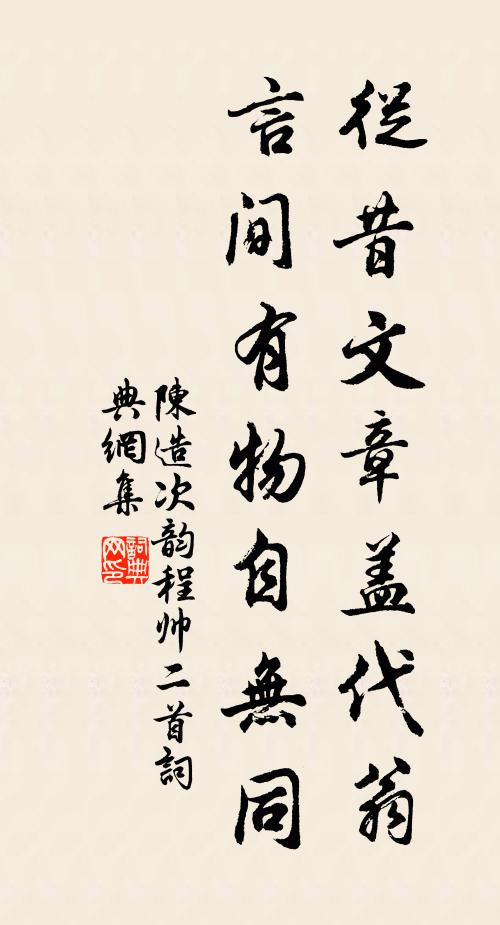 從昔文章盖代翁
言间有物自無同
陳造次韵程帅二首詞
典網集
詞典网印